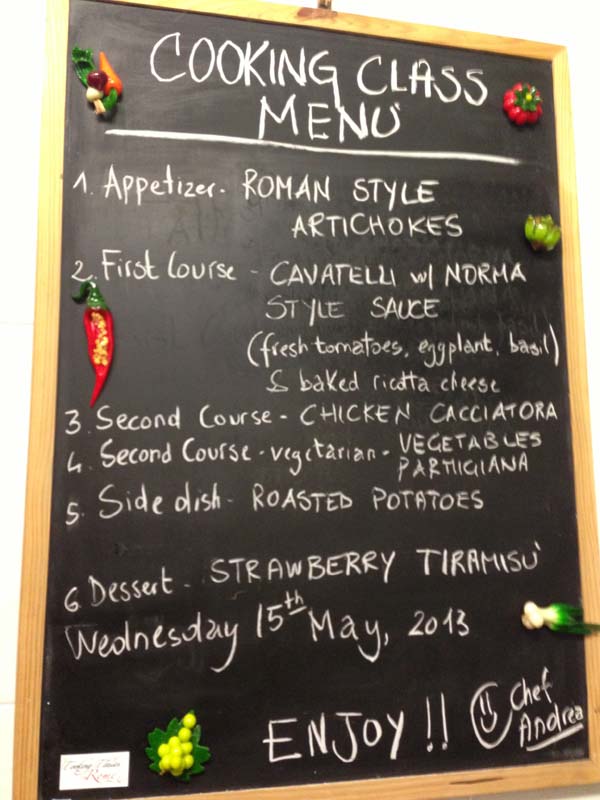 COOKING CLASS
MENÙ
1. Appetizer - ROMAN STYLE
ARTICHOKES
2. First Course - CAVATELLI w/ NORMA
STYLE SAUCE
(fresh tomatoes, eggplant, basil)
& baked ricotta cheese
3. Second Course - CHICKEN CACCIATORA
4. Second Course - vegetarian - VEGETABLES
PARMIGIANA
5. Side dish - ROASTED POTATOES
6. Dessert - STRAWBERRY TIRAMISÙ
Wednesday 15th May, 2013
ENJOY !! Chef
Andrea
Rome